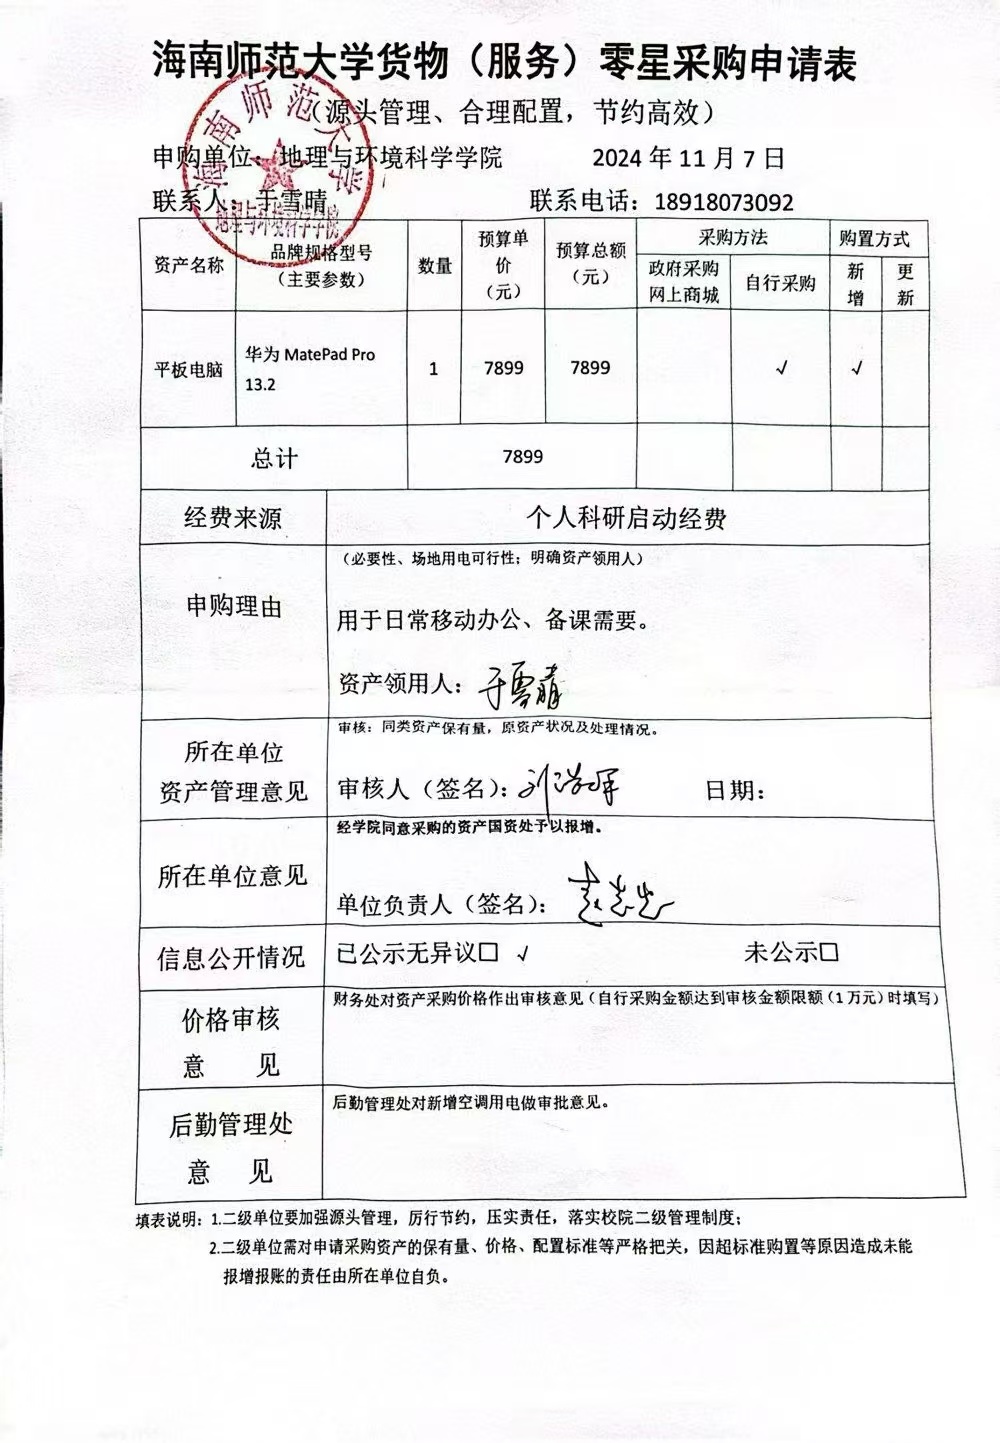 海南师范大学货物（服务）零星采购申请表
（源头管理、合理配置，节约高效）
申购单位：地理与环境科学学院 2024 年 11 月 7 日
联系人：于雪晴 联系电话：18918073092
海南师范大学
地理与环境科学学院
资产名称 品牌规格型号（主要参数） 数量 预算单价（元） 预算总额（元） 采购方法 购置方式
政府采购网上商城 自行采购 新增 更新
平板电脑 华为 MatePad Pro 13.2 1 7899 7899 √ √
总计 7899
经费来源 个人科研启动经费
申购理由
（必要性、场地用电可行性；明确资产领用人）
用于日常移动办公、备课需要。
资产领用人：于雪晴
所在单位
资产管理意见
审核：同类资产保有量，原资产状况及处理情况。
审核人（签名）： 日期：
所在单位意见
经学院同意采购的资产国资处予以报增。
单位负责人（签名）：
信息公开情况 已公示无异议□ √ 未公示□
价格审核
意 见
财务处对资产采购价格作出审核意见（自行采购金额达到审核金额限额（1 万元）时填写）
后勤管理处
意 见
后勤管理处对新增空调用电做审批意见。
填表说明：1.二级单位要加强源头管理，厉行节约，压实责任，落实校院二级管理制度；
2.二级单位需对申请采购资产的保有量、价格、配置标准等严格把关，因超标准购置等原因造成未能
报增报账的责任由所在单位自负。